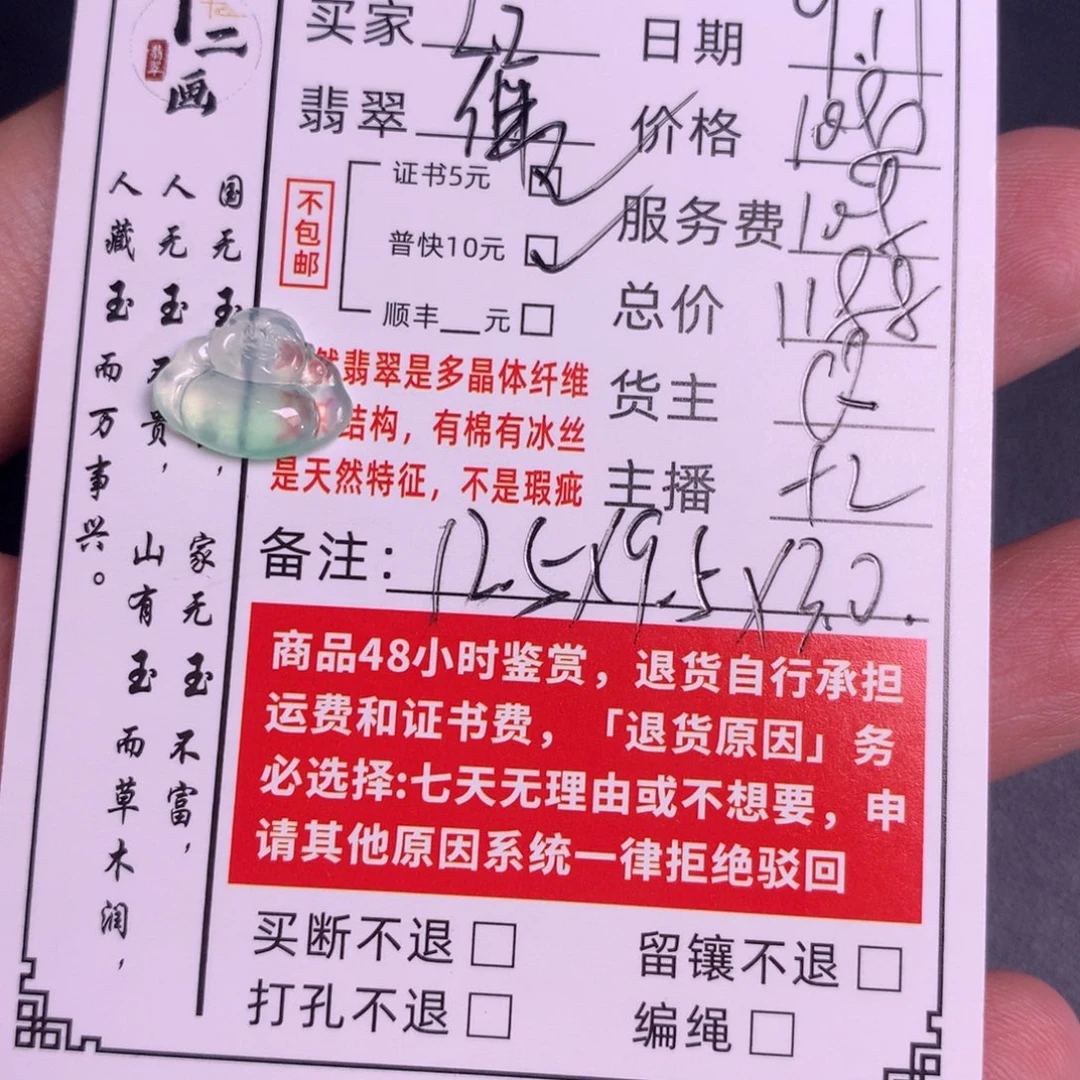 二
画
翡翠
买家
日期 9.1
翡翠
价格 1080
证书5元
不包邮
普快10元
服务费 108
顺丰__元
总价 1188
翡翠是多晶体纤维
货主
结构，有棉有冰丝
是天然特征，不是瑕疵
主播 12
备注：12.5×9.5×3.0.
国无玉
人无玉 贵，
人藏玉而万事兴。
家无玉不富，
山有玉而草木润，
商品48小时鉴赏，退货自行承担
运费和证书费，「退货原因」务
必选择:七天无理由或不想要，申
请其他原因系统一律拒绝驳回
买断不退
留镶不退
打孔不退
编绳